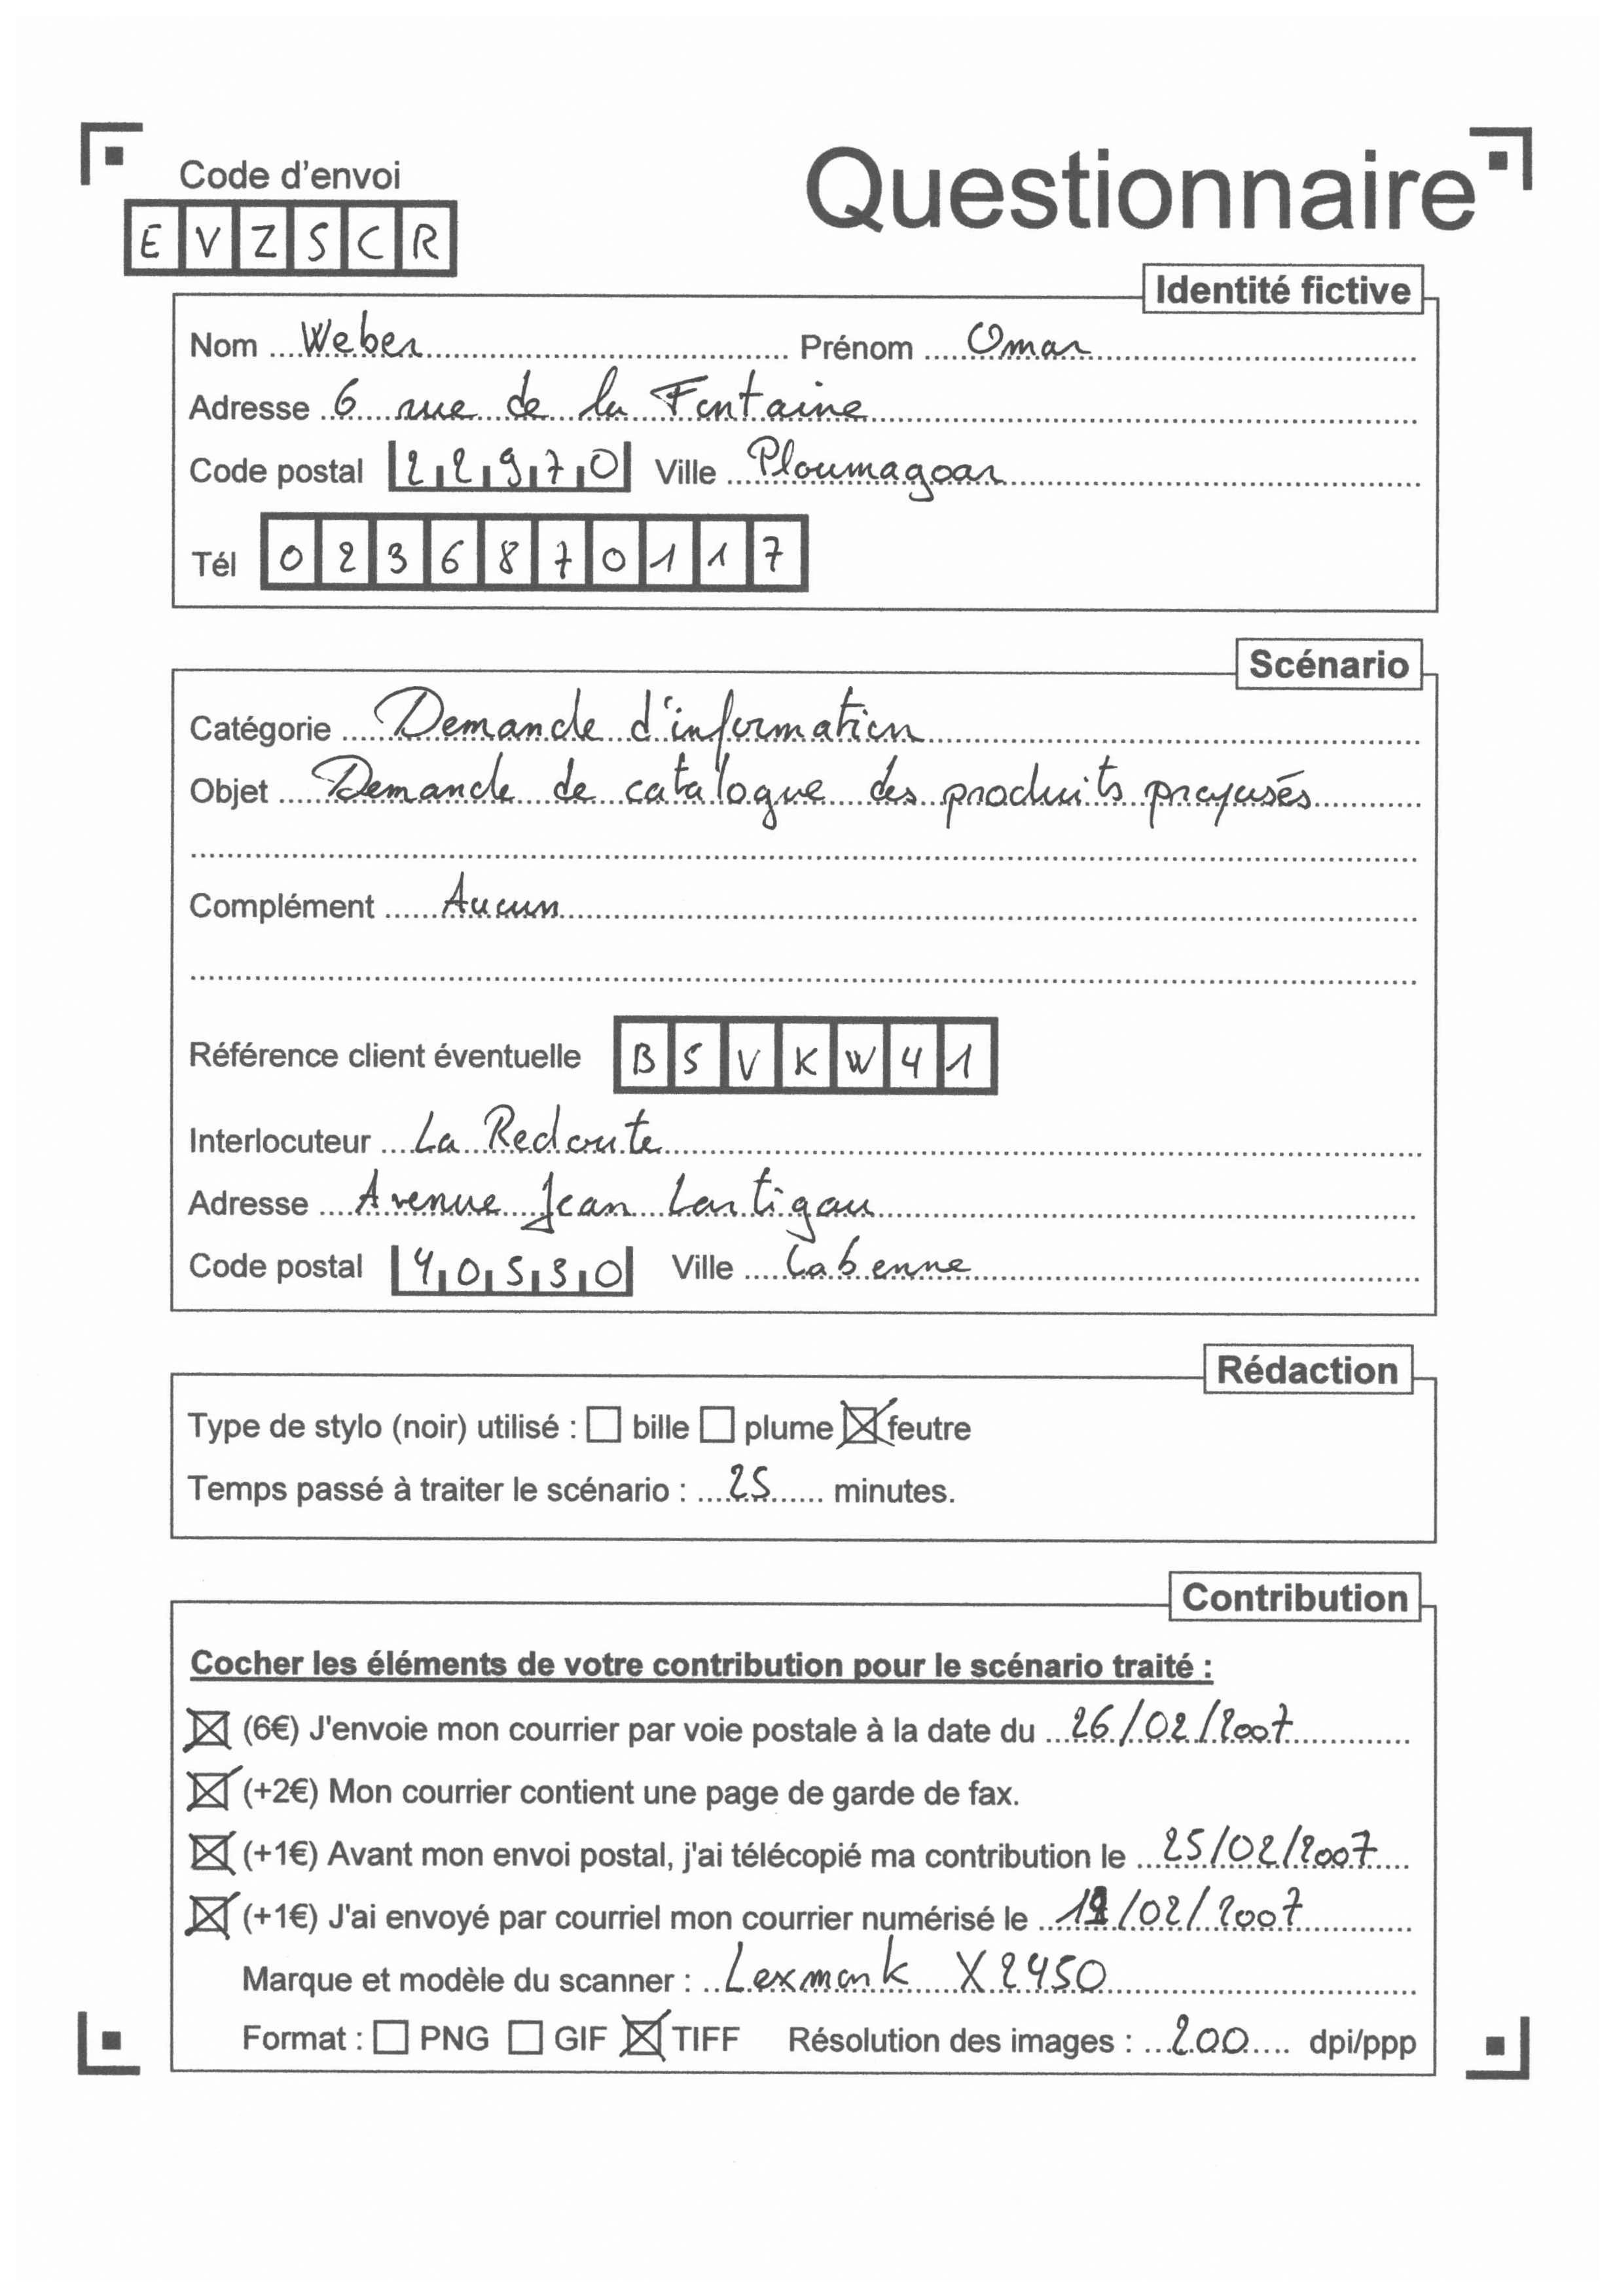 Code d'envoi
Questionnaire
EVZSCR
Identité fictive
Nom Weber Prénom Omar
Adresse 6 rue de la Fontaine
Code postal 22970 Ville Ploumagoar
Tél 0236870117
Scénario
Catégorie Demande d'information
Objet Demande de catalogue des produits proposés
Complément Aucun
Référence client éventuelle BSVKW41
Interlocuteur La Redoute
Adresse Avenue Jean Lartigau
Code postal 40530 Ville Labenne
Rédaction
Type de stylo (noir) utilisé : ☐ bille ☐ plume ☒ feutre
Temps passé à traiter le scénario : 25 minutes.
Contribution
Cocher les éléments de votre contribution pour le scénario traité :
☒ (6€) J'envoie mon courrier par voie postale à la date du 26/02/2007
☒ (+2€) Mon courrier contient une page de garde de fax.
☒ (+1€) Avant mon envoi postal, j'ai télécopié ma contribution le 25/02/2007
☒ (+1€) J'ai envoyé par courriel mon courrier numérisé le /02/2007
Marque et modèle du scanner : Lexmark X2450
Format : ☐ PNG ☐ GIF ☒ TIFF Résolution des images : 200 dpi/ppp